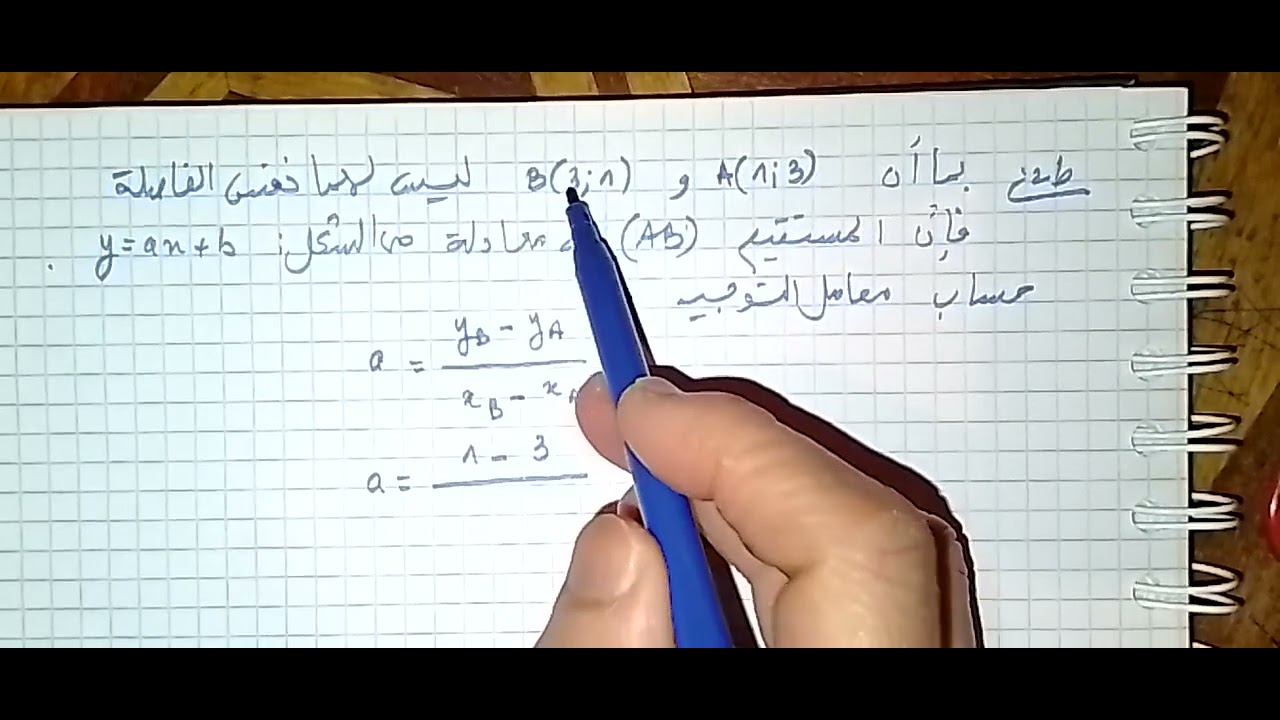 ط1 بما أن A(1;3) و B(3;1) ليس لهما نفس الفاصلة
فإن المستقيم (AB) معادلة من الشكل: y = ax + b .
حساب معامل التوجيه
a = (yB - yA) / (xB - xA)
a = 1 - 3